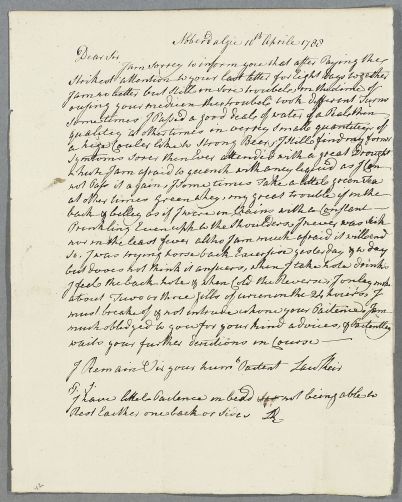 Abberdalgie 16th Aprile 1783
Dear Sir
I am Sorrey to inform you that after Paying the
Strickest attention to your last letter for Eight Days together
I am no better but Still in Sore trouble, in the time of
using your medicien the trouble took different Turns
Sometimes I Passed a good deal of water of a Pealethen
quality at other times in verrey Small quantities of
a high Couler like to Strong Beer, I Still find my former
Symtoms Sorer then ever attended with a great Drought
which I am afraid to quench with aney liquid as I Can
not Pass it again, I Some times Take a littel green Tea
at other times Green whey, my great trouble is in the
back & belley as if I were in Chains with a Constant
Prinkling Even up to the Shoulders, I never was Sick
nor in the least fever altho I am much afraid it will end
So. I was trying horse back Exercise yesterday & to day
but does not think it answers, when I take hote drink
I feels the back hote & when Cold the Reverse, I only make
about Two or three gills of uren in the 24 hours, I
must breake of & not intrude whone your Patience, I am
much obledged to you for your kind advices, & Patientley
waits your further derections in Course
I Remain Sir your hum Patient Law Keir
P.S.
I have littel Patience in bedd not being able to
Rest Eaither one back or Sides LK